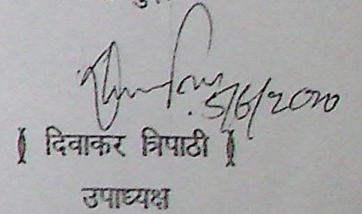 5/6/2020
( दिवाकर त्रिपाठी )
उपाध्यक्ष